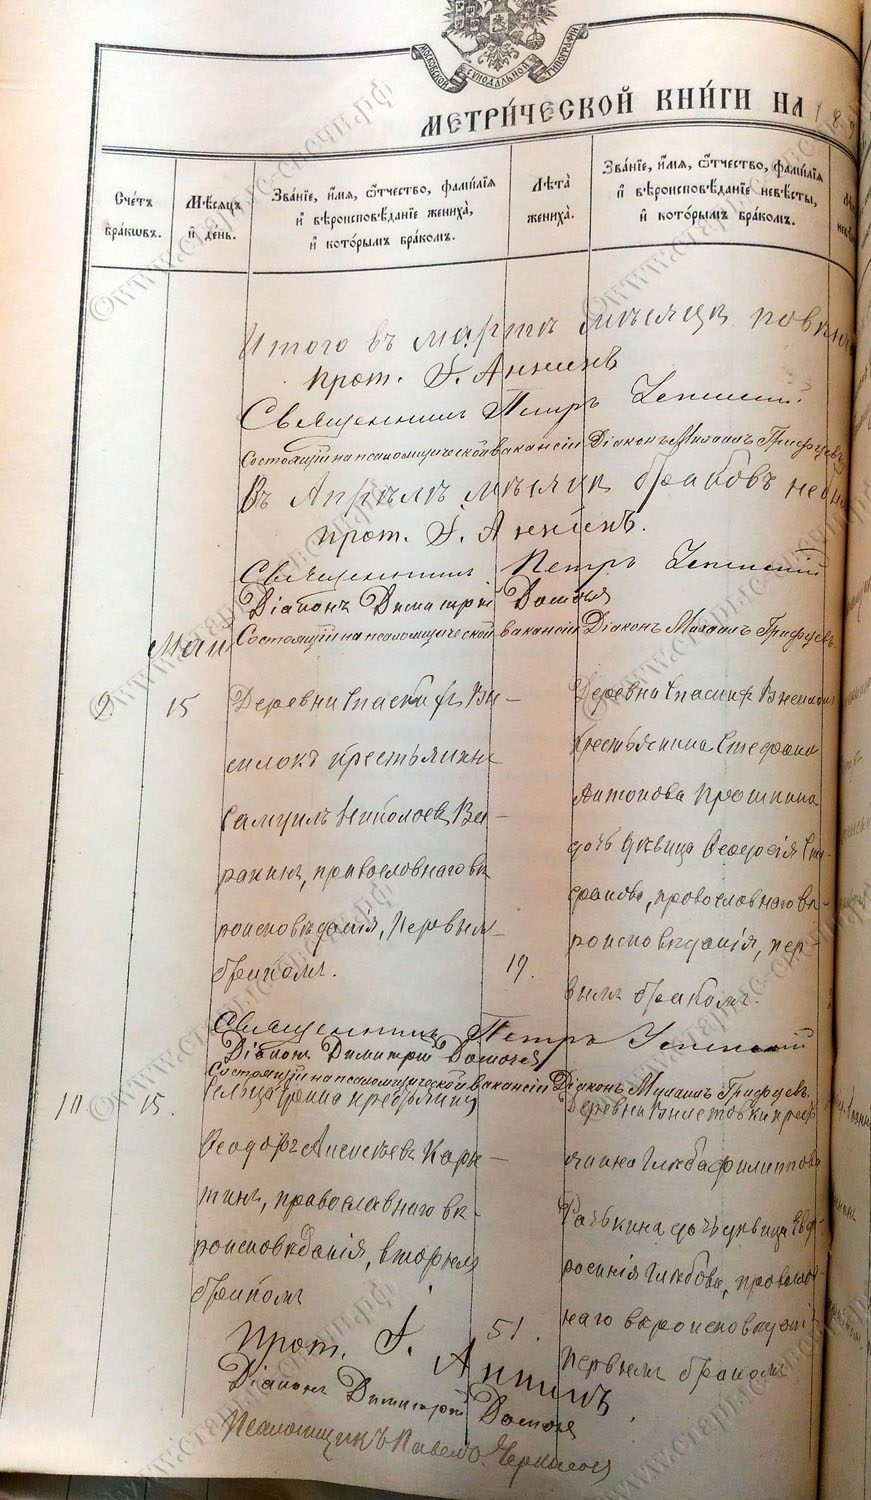 МОСКОВСКОЙ СѴНОДАЛЬНОЙ ТИПОГРАФІИ
МЕТРИ́ЧЕСКОЙ КНИ́ГИ НА 18
Сче́тъ бра́кωвъ.
Мѣ́сяцъ и҆ де́нь.
Зва́ніе, и҆́мя, ѻ҆́тчество, фами́лія
и҆ вѣроисповѣ́даніе жениха̀,
и҆ кото́рымъ бра́комъ.
Лѣта̀ жениха̀.
Зва́ніе, и҆́мя, ѻ҆́тчество, фами́лія
и҆ вѣроисповѣ́даніе невѣ́сты,
и҆ кото́рымъ бра́комъ.
Итого въ мартѣ мѣсяцѣ повѣнч
Прот. І. Аннинъ
Священникъ Петръ Успенскій
Состоящій на псаломщической вакансіи Діаконъ Михаилъ Грифцевъ
Въ Апрѣлѣ мѣсяцѣ браковъ не бы
Прот. І. Аннинъ.
Священникъ Петръ Успенскій
Діаконъ Димитрій
Состоящій на псаломщической вакансіи Діаконъ Михаилъ Грифцевъ.
Маи
9. 15
Деревни Спаскихъ Вы-
силокъ крестьянинъ
Самуилъ Николаевъ
православнаго вѣ
роисповѣданія, первым
бракомъ.
19.
Деревни Спаскихъ Висилокъ
крестьянина Стефана
Антонова Прошкина
дочь дѣвица Ѳеодосія Сте-
фанова, православнаго вѣ-
роисповѣданія, пер-
вымъ бракомъ.
Священникъ Петръ Успенскій
Діаконъ Димитрій
Состоящій на псаломщической вакансіи Діаконъ Михаилъ Грифцевъ.
10 15.
Сельца крестьянинъ
Ѳеодоръ Алексѣевъ
тинъ, православнаго вѣ-
роисповѣданія, вторымъ
бракомъ
51.
Деревни крест
янина Глѣба Филиппова
дочь дѣвица Евф-
росинія Глѣбова, православ-
наго вѣроисповѣдані
первымъ бракомъ
Прот. І. Аннинъ
Діаконъ Димитрій
Псаломщикъ Павелъ
©www.старыс-свсчи.рф